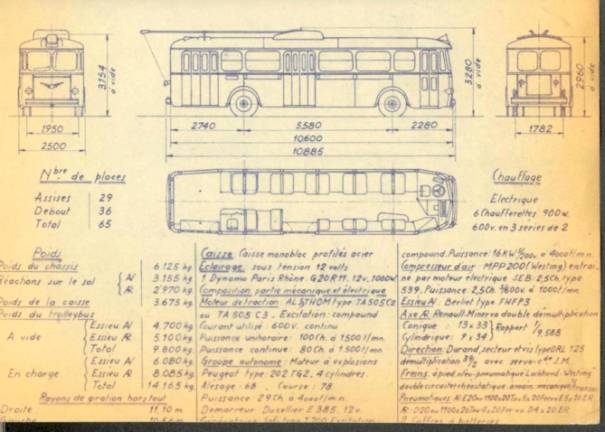 3154
à vide
1950
2500
3280
à vide
2740
5580
2280
10600
10885
2960
à vide
1782
Nbre de places
Assises 29
Debout 36
Total 65
Chauffage
Electrique
6 Chaufferettes 900w.
600v. en 3 series de 2
Poids
Poids du chassis 6.125 kg
Réactions sur le sol AV 3.155 kg
AR 2970 kg
Poids de la caisse 3.675 kg
Poids du trolleybus
A vide Essieu AV 4.700 kg
Essieu AR 5.100 kg
Total 9.800 kg
En charge Essieu AV 6.080 kg
Essieu AR 8.085 kg
Total 14.165 kg
Rayons de giration hors tout
Droite 11,10 m
Caisse Caisse monobloc profilés acier
Eclairage sous tension 12 volts
1 Dynamo Paris Rhône G20R11. 12v. 1000w
Composition partie mécanique et électrique
Moteur de traction ALSTHOM Type TA505C2
ou TA 505 C3. Excitation: compound
Courant utilisé: 600v. continu
Puissance unihoraire: 100Ch à 1500t/mn.
Puissance continue: 80Ch à 1500t/mn
Groupe autonome: Moteur à explosions
Peugeot type: 202.TG2, 4 cylindres
Alesage: 68. Course: 78
Puissance 29Ch à 4000t/mn.
Demarreur Ducellier E 385. 12v.
compound. Puissance: 16KW à 4000t/mn.
Compresseur d'air MPP200 (Westing) entrai-
né par moteur électrique JEB. 2,5Ch type
S39. Puissance 2,5Ch à 1000t/mn
Essieu AV Berliet type FHFP3
Axe AR Renault Minerva double démultiplication
Conique: 13 x 33 Rapport
Cylindrique: 9 x 34 9,588
Direction: Durand, secteur et vis type DRL 125
avec servo
Freins: à pied
double circuit
Pneumatiques